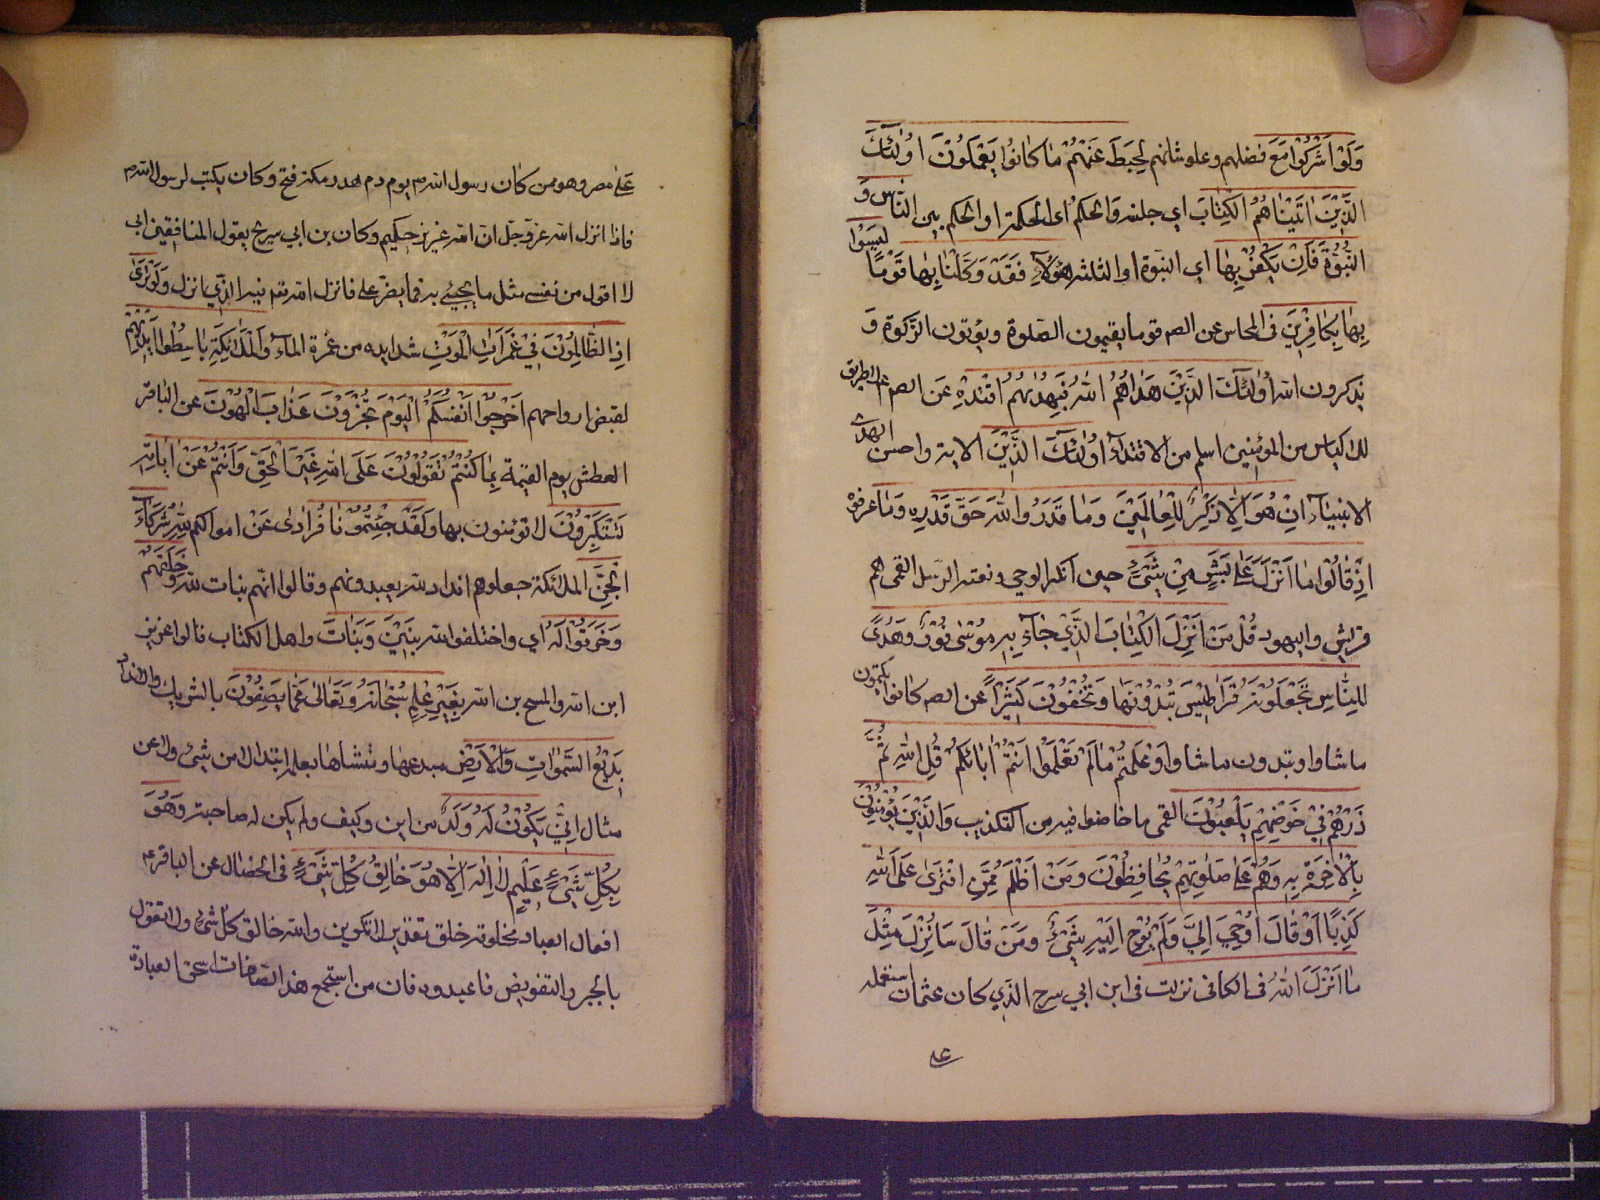 وَلَوْ اَشْرَكُوا مَعَ فضلهم وعلو شانهم لَحَبِطَ عَنْهُمْ مَا كَانُوا يَعْمَلُونَ اُولٰئِكَ
الَّذِيْنَ اٰتَيْنَاهُمُ الْكِتَابَ اي جنسه وَالْحُكْمَ اى الحكمة او الحكم بين الناس وَ
النُّبُوَّةَ فَاِنْ يَكْفُرْ بِهَا اي النبوة او الثلثة هٰؤُلَاءِ فَقَدْ وَكَّلْنَا بِهَا قَوْمًا لَيْسُوْا
بِهَا بِكَافِرِيْنَ فى المحاسن عن الصـ قوما يقيمون الصلوة ويؤتون الزكوة وَ
يذكرون الله اُولٰئِكَ الَّذِيْنَ هَدَاهُمُ اللهُ فَبِهُدٰىهُمُ اقْتَدِهْ عن الصـ ع لا طريق
للاكياس من المؤمنين اسلم من الاقتداء اُولٰئِكَ الَّذِيْنَ الاية واحسن الهدى
الانبياء اِنْ هُوَ اِلَّا ذِكْرٰى لِلْعَالَمِيْنَ وَمَا قَدَرُوا اللهَ حَقَّ قَدْرِهِ وَمَا عرفوه
اِذْ قَالُوا مَا اَنْزَلَ اللهُ عَلٰى بَشَرٍ مِنْ شَيْءٍ حين انكروا الوحي وبعثه الرسل القمى هم
قريش واليهود قُلْ مَنْ اَنْزَلَ الْكِتَابَ الَّذِيْ جَاءَ بِهِ مُوْسٰى نُوْرًا وَهُدًى
لِلنَّاسِ تَجْعَلُوْنَهُ قَرَاطِيْسَ تُبْدُوْنَهَا وَتُخْفُوْنَ كَثِيْرًا عن الصـ كانوا يكتمون
ما شاؤا ويبدون ما شاؤا وَعُلِّمْتُمْ مَا لَمْ تَعْلَمُوْا اَنْتُمْ وَلَا اٰبَائُكُمْ قُلِ اللهُ ثُمَّ
ذَرْهُمْ فِيْ خَوْضِهِمْ يَلْعَبُوْنَ القمى ما خاضوا فيه من التكذيب وَالَّذِيْنَ يُؤْمِنُوْنَ
بِالْاٰخِرَةِ بِهِ وَهُمْ عَلٰى صَلٰوتِهِمْ يُحَافِظُوْنَ وَمَنْ اَظْلَمُ مِمَّنِ افْتَرٰى عَلَى اللهِ
كَذِبًا اَوْ قَالَ اُوْحِيَ اِلَيَّ وَلَمْ يُوْحَ اِلَيْهِ شَيْءٌ وَمَنْ قَالَ سَاُنْزِلُ مِثْلَ
مَا اَنْزَلَ اللهُ فى الكافى نزلت فى ابن ابي سرح الذي كان عثمان استعمله
على مصر وهو من كان رسول الله ص يوم دم هدر مكة فتح وكان يكتب لرسول الله ص
فاذا انزل الله عز وجل ان الله عزيز حكيم وكان بن ابي سرح يقول للمنافقين اني
لا اقول من نفسي مثل ما يجيئ به فما يغير على فانزل الله فيه الذي انزل وَلَوْ تَرٰى
اِذِ الظَّالِمُوْنَ فِيْ غَمَرَاتِ الْمَوْتِ شدايده من غمرة الماء وَالْمَلٰئِكَةُ بَاسِطُوا اَيْدِيْهِمْ
لقبض ارواحهم اَخْرِجُوْا اَنْفُسَكُمُ الْيَوْمَ تُجْزَوْنَ عَذَابَ الْهُوْنِ عن الباقر
العطش يوم القيمة بِمَا كُنْتُمْ تَقُوْلُوْنَ عَلَى اللهِ غَيْرَ الْحَقِّ وَاَنْتُمْ عَنْ اٰيَاتِهِ
تَسْتَكْبِرُوْنَ لا تؤمنون بها وَلَقَدْ جِئْتُمُوْنَا فُرَادٰى عَنْ اموالكم لِلّٰهِ شُرَكَاءَ
الْجِنَّ الملائكة جعلوهم اندادا لله يعبدونهم وقالوا انهم بنات لله وَخَلَقَهُمْ
وَخَرَقُوْا لَهُ اي واختلقوا لله بَنِيْنَ وَبَنَاتٍ واهل الكتاب قالوا عزير
ابن الله والمسيح بن الله بِغَيْرِ عِلْمٍ سُبْحَانَهُ وَتَعَالٰى عَمَّا يَصِفُوْنَ بالشريك والولد
بَدِيْعُ السَّمٰوَاتِ وَالْاَرْضِ مبدعها ومنشاها بعلم ابتداء لا من شيئ ولا عن
مثال اَنّٰى يَكُوْنُ لَهُ وَلَدٌ من اين وكيف ولم يكن له صاحبة وَهُوَ
بِكُلِّ شَيْءٍ عَلِيْمٌ لَا اِلٰهَ اِلَّا هُوَ خَالِقُ كُلِّ شَيْءٍ فى الخصال عن الباقر ع
افعال العباد مخلوقة خلق تقدير لا تكوين والله خالق كل شئ ولا تقول
بالجبر والتفويض فاعبدوه فان من استجمع هذه الصفات استحق العبادة